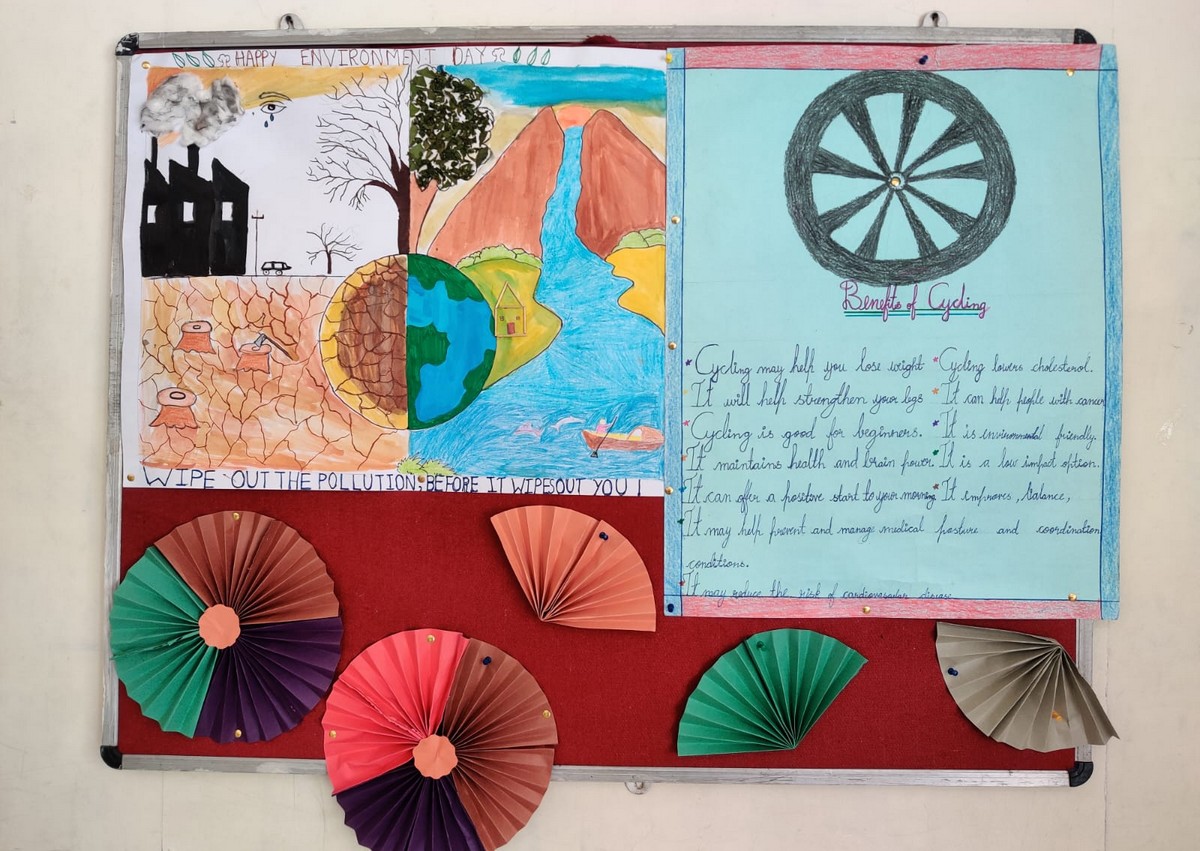 HAPPY ENVIRONMENT DAY
WIPE OUT THE POLLUTION; BEFORE IT WIPES OUT YOU !
Benefits of Cycling
* Cycling may help you lose weight
It will help strengthen your legs
Cycling is good for beginners.
It maintains health and brain power.
It can offer a positive start to your morning
It may help prevent and manage medical
conditions.
It may reduce the risk of cardiovascular disease
* Cycling lowers cholesterol.
* It can help people with cancer
* It is environmental friendly.
* It is a low impact option.
* It improves, balance,
posture and coordination